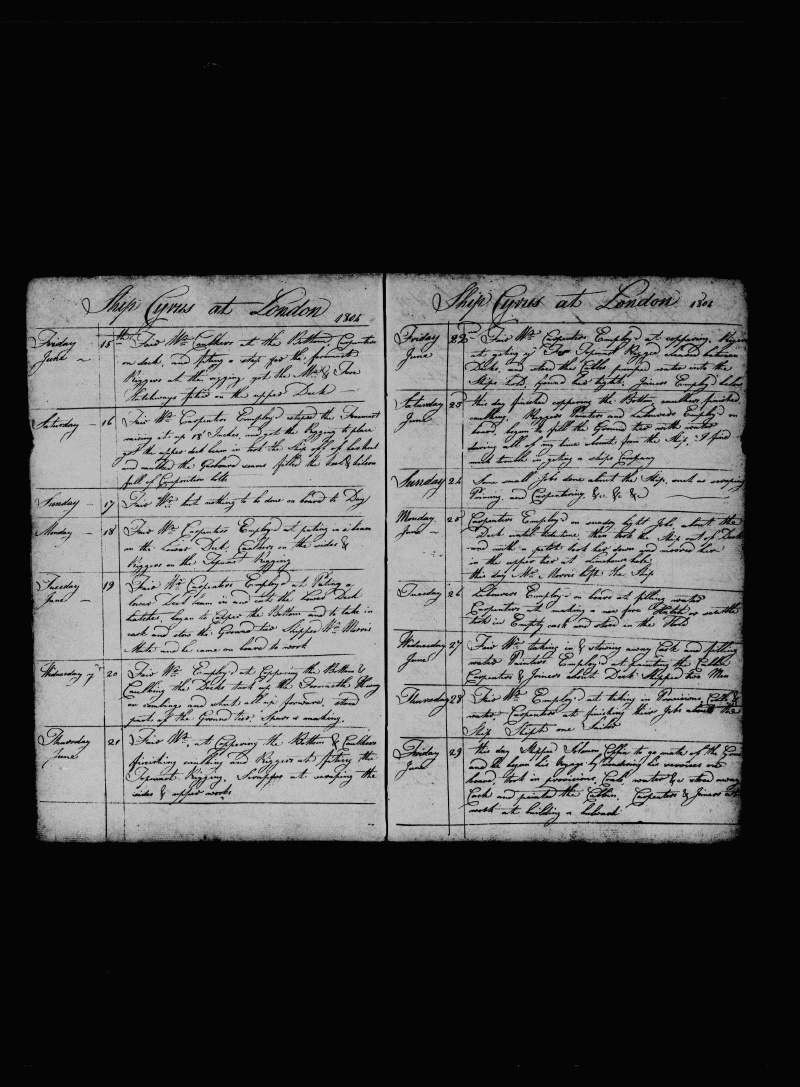 Ship Cyrus at London 180
Friday June 15th Fair Wr Caulkers at the Bottom, Carpenters
on deck, and fixing a step for the foremast
Riggers at the rigging got the Main & Fore
Hatchways fitted on the upper Deck
Saturday 16 Fair Wr Carpenters Employ'd the Foremast
raising it up 18 Inches, and got the Rigging to place
got the upper deck beam in took the Ship off of
and caulked the Garboard seams filled the
full of Composition
Sunday 17 Fair Wr but nothing to be done on board to Day
Monday 18 Fair Wr Carpenters Employ'd at puting in a beam
in the Lower Deck. Caulkers on the sides &
Riggers on the Topmast Rigging
Tuesday June 19 Fair Wr Carpenters Employ'd at Puting a
lower Deck beam in and cuts the Lower Deck
hatches, began to Copper the Bottom and to take in
cask and stow the Ground tier Shipped Wm Morris
Mate and he came on board to work
Wednesday 20 Fair Wr Employ'd at Coppering the Bottom &
Caulking the Decks took up the
and all up forward, stored
part of the Ground tier,
Thursday June 21 Fair Wr at Coppering the Bottom & Caulkers
finishing caulking and Riggers at fixing the
Topmast Rigging. Scrapers at scraping the
sides & upper works
Ship Cyrus at London 180
Friday June 22nd Fair Wr Carpenters Employ'd at coppering, Riggers
at geting up Topmast Rigged between
Decks, and stored the Cables pumped water into the
Ship's hold, found her tight. Joiners Employ'd
Saturday June 23 this day finished coppering the Bottom caulkers finished
caulking. Riggers Painters and Labourers Employ'd on
board, began to fill the Ground tier with water
during all of my time about from the Ship, I find
much trouble in geting a ships Company
Sunday 24 Some small Jobs done about the Ship, such as scraping
Priming and Carpentering, &c. &c &c
Monday June 25 Carpenters Employ'd on sundry light Jobs, about the
Deck until tide time, then took the Ship out of Dock
and with a pilot took her down and moored her
in the upper tier at Limehouse hole,
this day Mr Morris left the Ship
Tuesday 26 Labourers Employ'd on board at filling water
Carpenters at making a new fore Hatch or scuttle
took in Empty cask and stored in the Hold
Wednesday June 27 Fair Wr taking in & stowing away Cask and filling
water Painters Employ'd at Painting the Cabbin
Carpenters & Joiners about Deck Shipped two Men
Thursday 28 Fair Wr Employ'd at taking in Provisions, Cask &
water Carpenters at finishing their Jobs about the
Ship Shipt one
Friday June 29 this day Shipped Coffin to go mate of the
and he began his Voyage by rendering his services on
board, took in provisions, Cask water & stored away
Cask and painted the Cabbin. Carpenters & Joiners at
work at building a